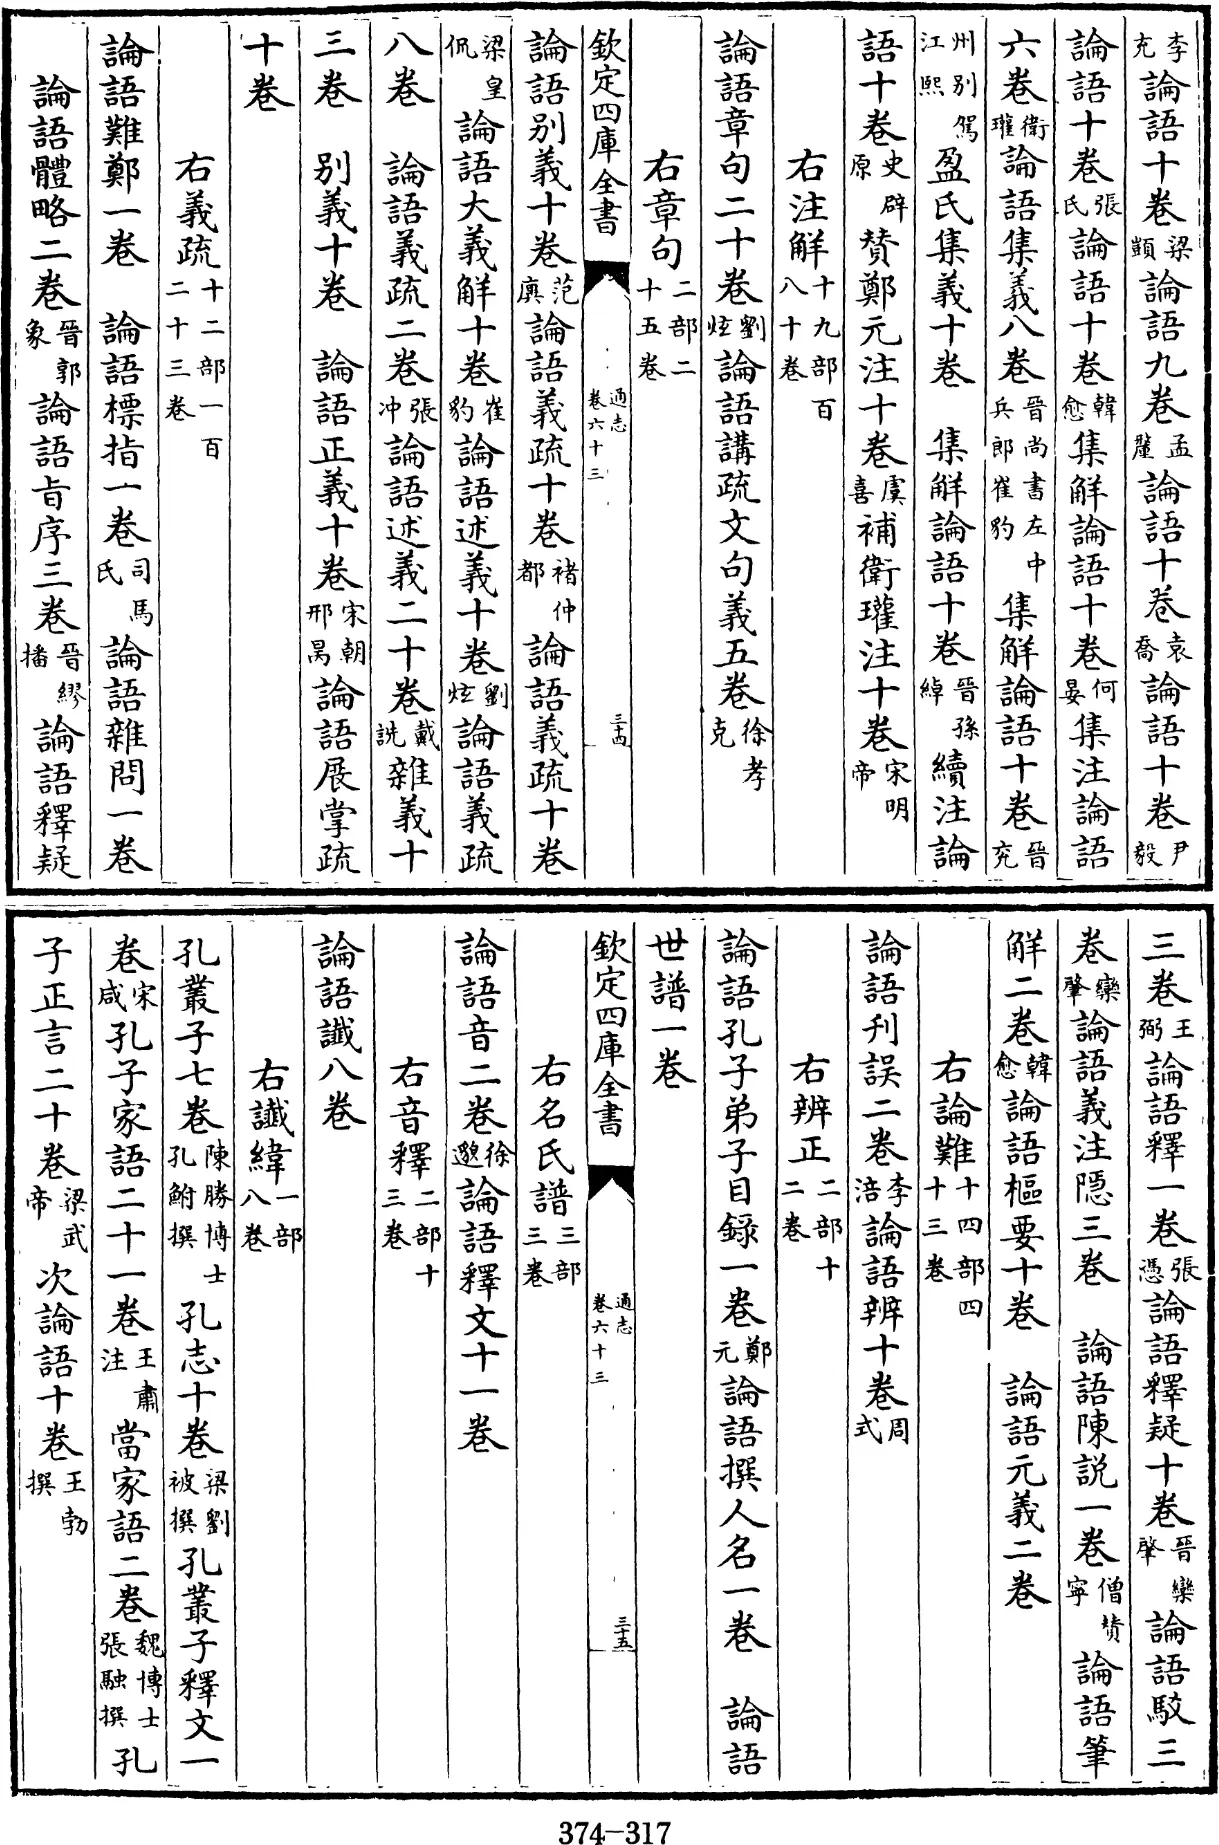 李充論語十卷梁顗論語九卷孟釐論語十卷袁喬論語十卷尹毅
論語十卷張氏論語十卷韓愈集解論語十卷何晏集注論語
六卷衛瓘論語集義八卷晉尚書左中兵郎崔豹集解論語十卷晉兖
州别駕江熙盈氏集義十卷 集解論語十卷晉孫綽續注論
語十卷史辟原贊鄭元注十卷虞喜補衛瓘注十卷宋明帝
右注解十九部百八十卷
論語章句二十卷劉炫論語講疏文句義五卷徐孝克
右章句二部二十五卷
欽定四庫全書 通志卷六十三 三十四
論語别義十卷范廙論語義疏十卷褚仲都論語義疏十卷
梁皇侃論語大義解十卷崔豹論語述義十卷劉炫論語義疏
八卷 論語義疏二卷張冲論語述義二十卷戴詵雜義十
三卷 别義十卷 論語正義十卷宋朝邢昺論語展掌疏
十卷
右義疏十二部一百二十三卷
論語難鄭一卷 論語標指一卷司馬氏論語雜問一卷
論語體略二卷晉郭象論語旨序三卷晉繆播論語釋疑
三卷王弼論語釋一卷張憑論語釋疑十卷晉欒肇論語駮三
卷欒肇論語義注隠三卷 論語陳説一卷僧贊寜論語筆
解二卷韓愈論語樞要十卷 論語元義二卷
右論難十四部四十三卷
論語刋誤二卷李涪論語辨十卷周式
右辨正二部十二卷
論語孔子弟子目錄一卷鄭元論語撰人名一卷 論語
世譜一卷
欽定四庫全書 通志卷六十三 三十五
右名氏譜三部三卷
論語音二卷徐邈論語釋文十一卷
右音釋二部十三卷
論語讖八卷
右讖緯一部八卷
孔叢子七卷陳勝博士孔鮒撰孔志十卷梁劉被撰孔叢子釋文一
卷宋咸孔子家語二十一卷王肅注當家語二卷魏博士張融撰孔
子正言二十卷梁武帝次論語十卷王勃撰
374-317